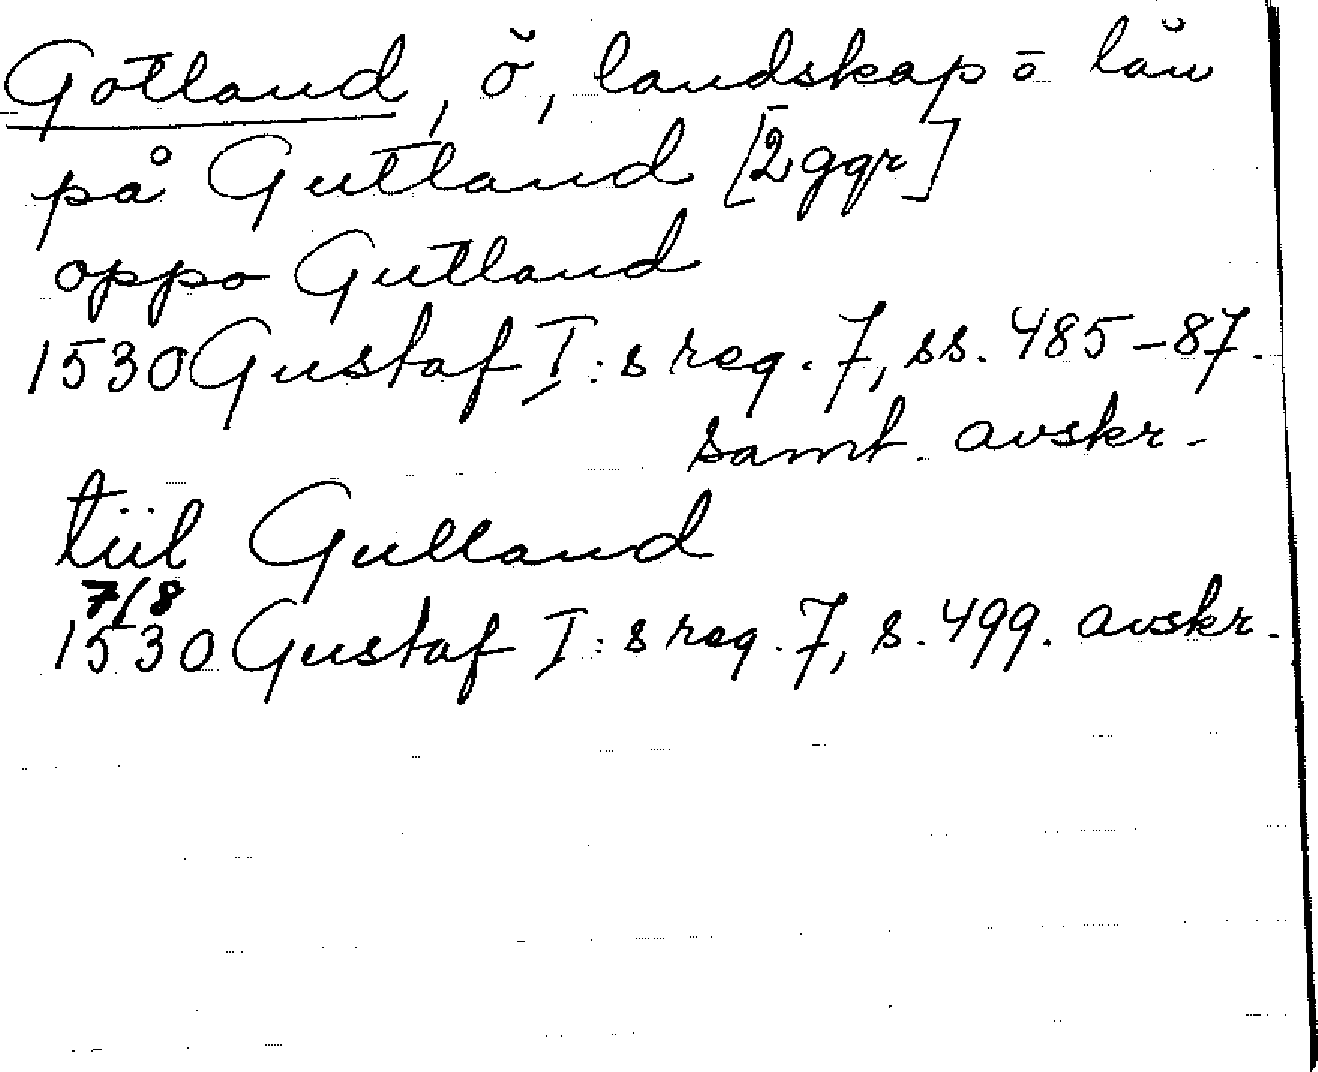 Gotland, ö, landskap o län
på Gutland [2 ggr]
oppo Gutland
1530 Gustaf I:s reg. 7, ss. 485-87.
samt. avskr.
tiil Gulland
7/8
1530 Gustaf I:s reg. 7, s. 499. avskr.